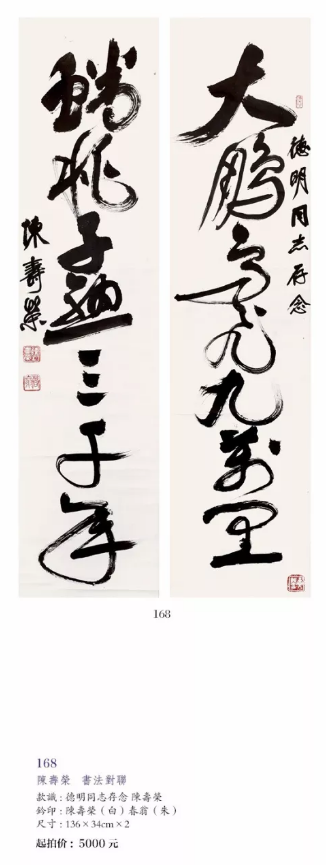 大鵬飛九萬里
德明同志存念
蟠桃子熟三千年
陳壽榮
168
168
陳壽榮 書法對聯
款識：德明同志存念 陳壽榮
鈐印：陳壽榮（白）春翁（朱）
尺寸：136×34cm×2
起拍价：5000 元